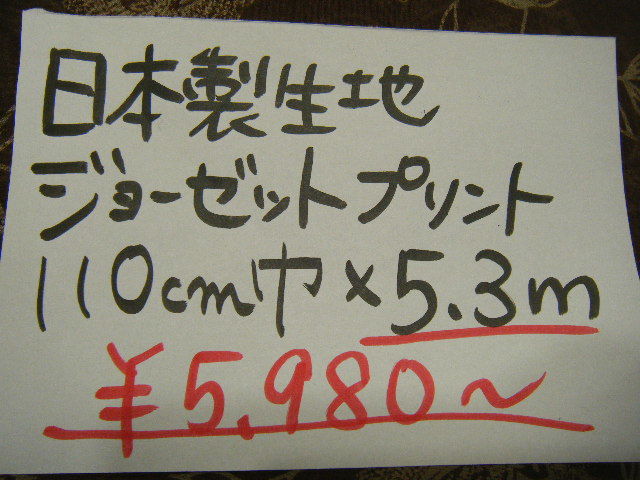 日本製生地
ジョーゼットプリント
110cm巾×5.3m
¥5,980~